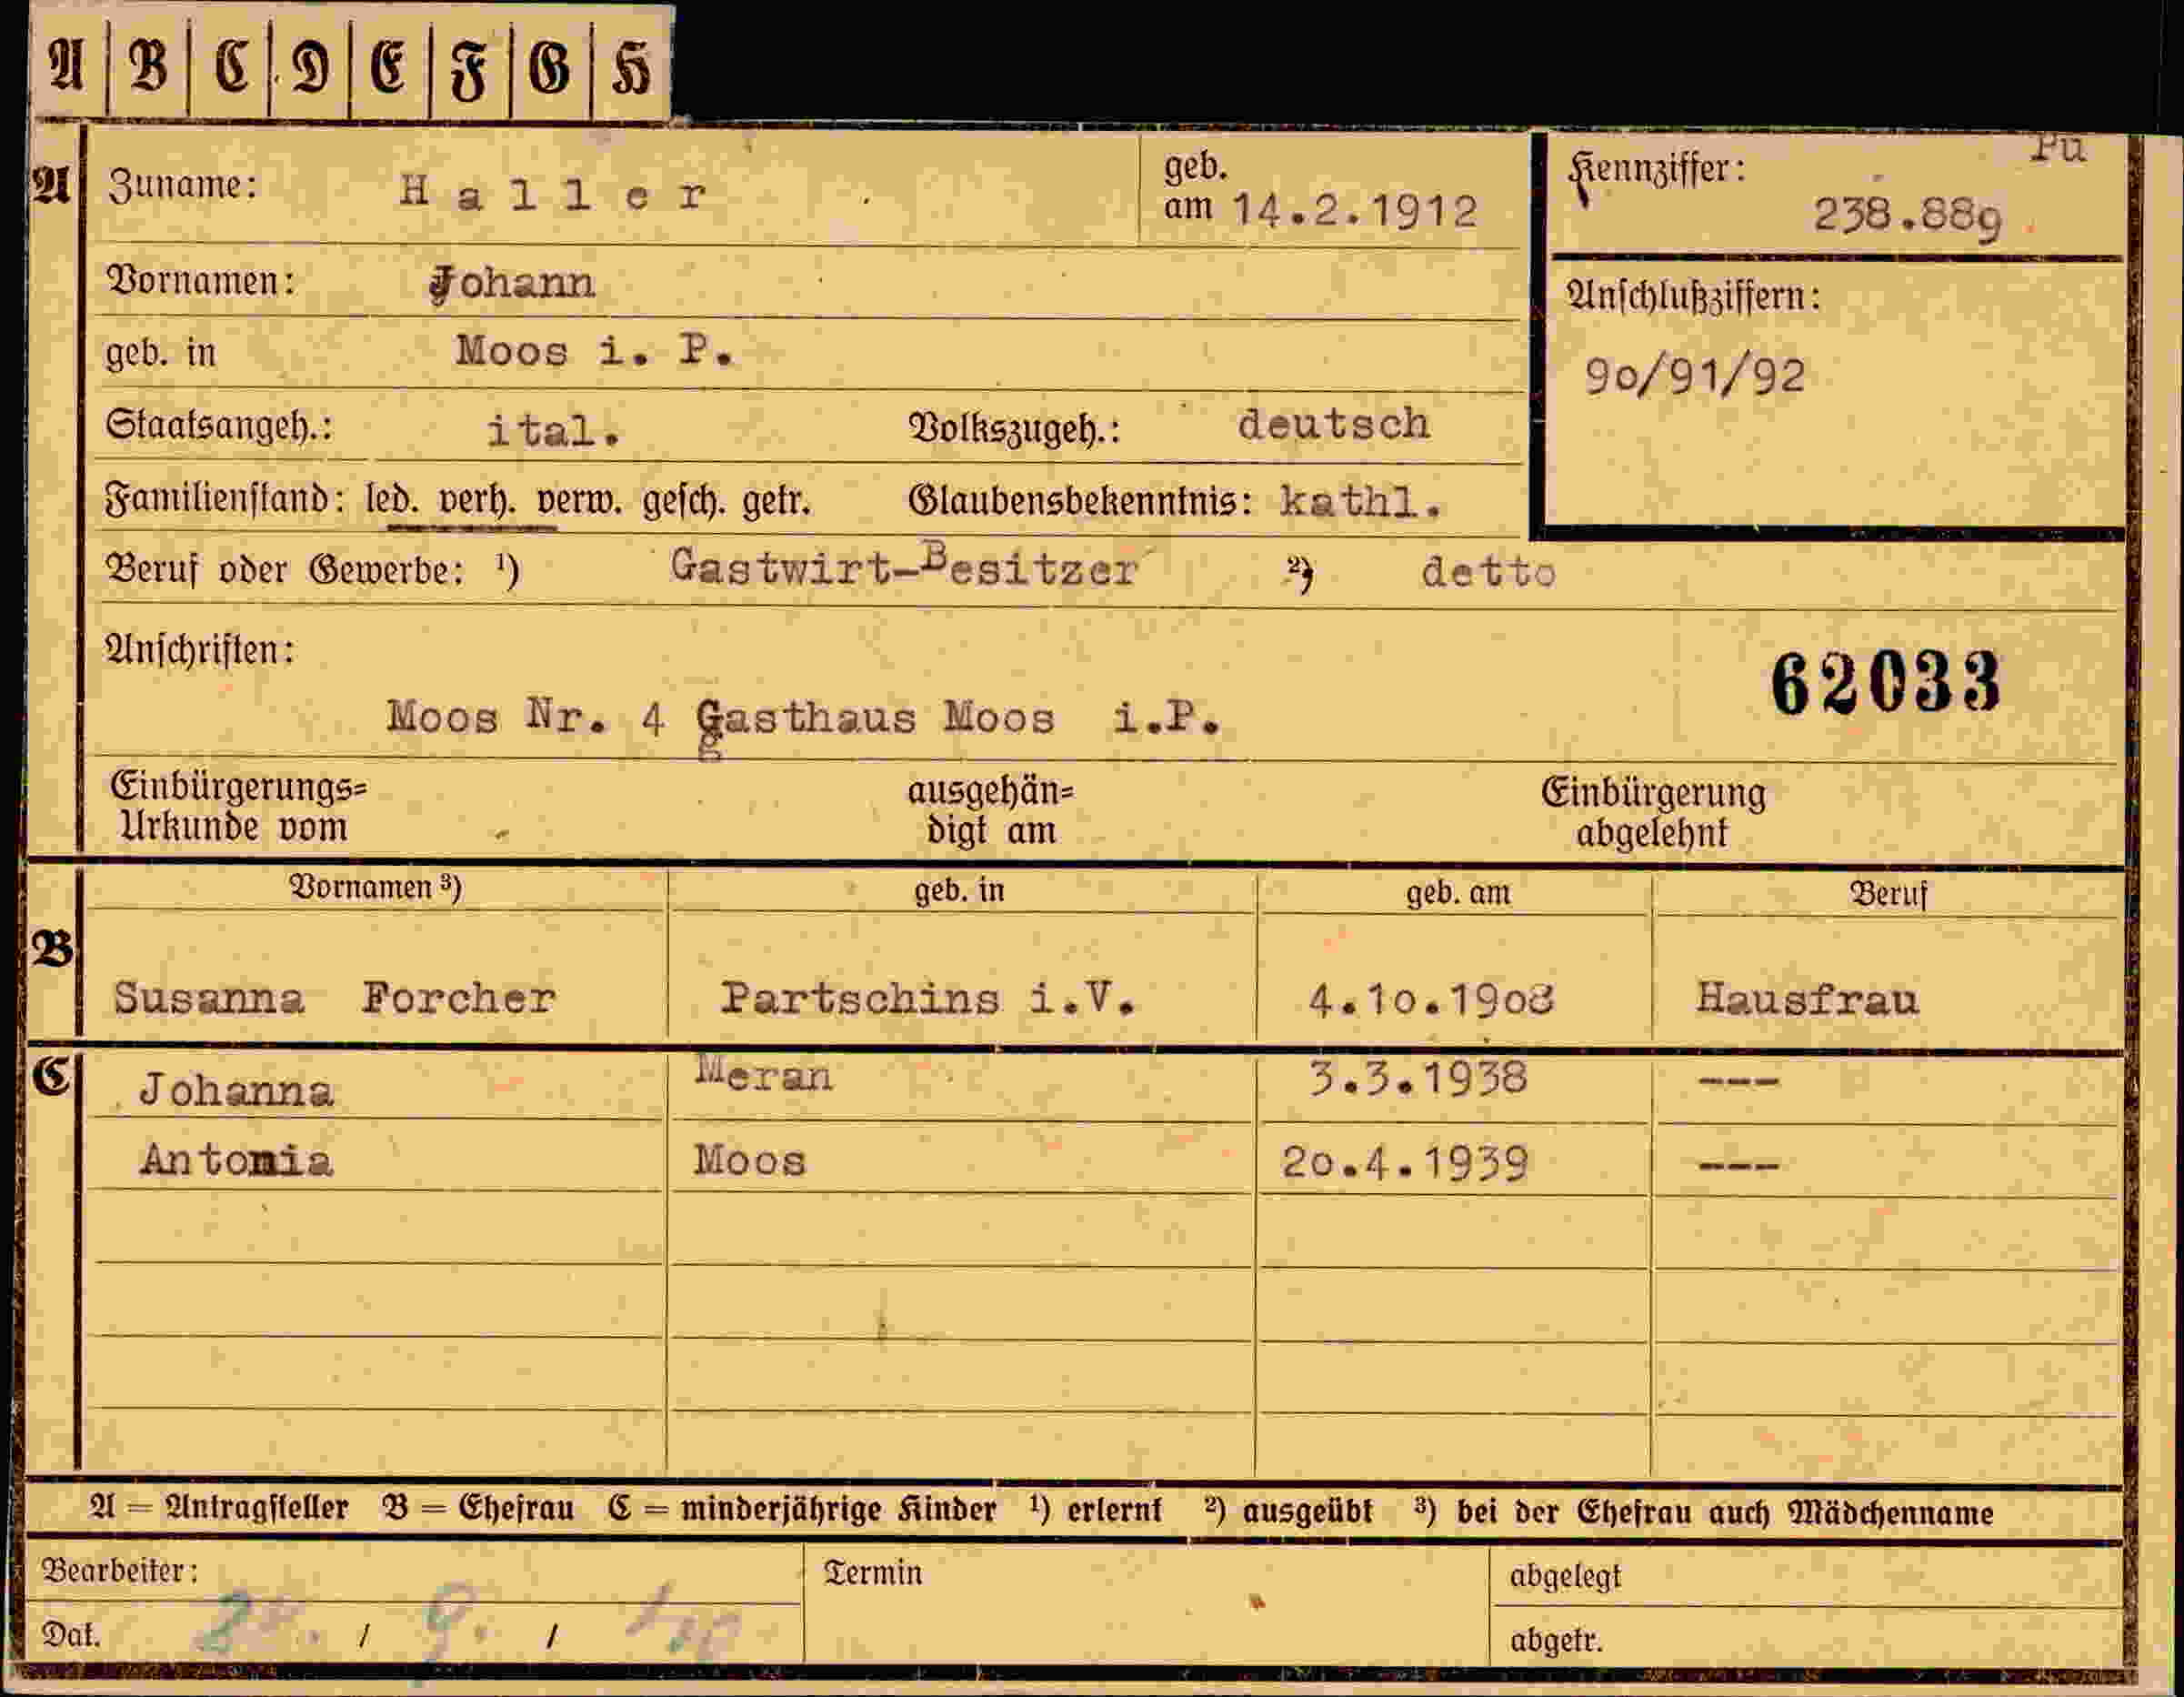 A B C D E F G H
Pu
A Zuname: Haller geb. am 14.2.1912
Kennziffer: 238.889
Vornamen: Johann
Anschlußziffern:
90/91/92
geb. in Moos i. P.
Staatsangeh.: ital. Volkszugeh.: deutsch
Familienstand: led. verh. verw. gesch. getr. Glaubensbekenntnis: kathl.
Beruf oder Gewerbe: ¹) Gastwirt-Besitzer ²) detto
Anschriften:
62033
Moos Nr. 4 Gasthaus Moos i.P.
Einbürgerungs= ausgehän= Einbürgerung
Urkunde vom digt am abgelehnt
Vornamen ³) geb. in geb. am Beruf
B
Susanna Forcher Partschins i.V. 4.10.1908 Hausfrau
C Johanna Meran 3.3.1938 ---
Antonia Moos 20.4.1939 ---
A = Antragsteller B = Ehefrau C = minderjährige Kinder ¹) erlernt ²) ausgeübt ³) bei der Ehefrau auch Mädchenname
Bearbeiter: Termin abgelegt
Dat. / 9. /
abgetr.